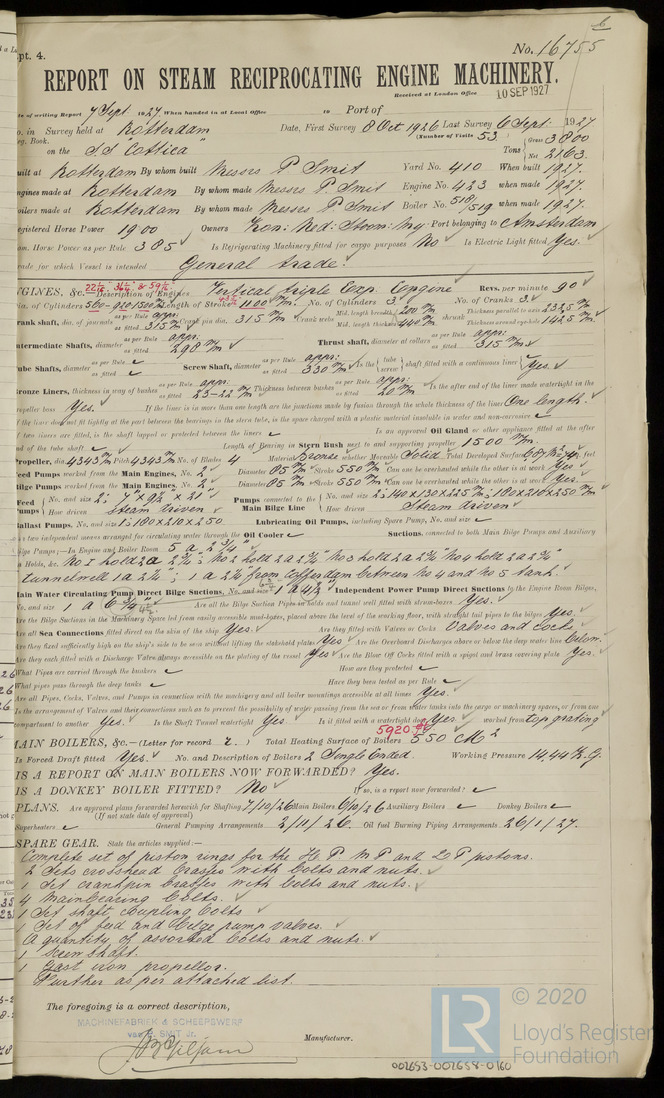 6
pt. 4.
No. 16755
REPORT ON STEAM RECIPROCATING ENGINE MACHINERY.
Received at London Office 10 SEP 1927
te of writing Report 7 Sept. 1927 When handed in at Local Office 19 Port of
o. in Survey held at Rotterdam Date, First Survey 8 Oct 1926 Last Survey 6 Sept. 1927
eg. Book. (Number of Visits 53)
on the S.S "Cottica" Tons Gross 3800 Net 2163
uilt at Rotterdam By whom built Messrs P Smit Yard No. 410 When built 1927.
ngines made at Rotterdam By whom made Messrs P Smit Engine No. 423 when made 1927.
oilers made at Rotterdam By whom made Messrs P Smit Boiler No. 518/519 when made 1927.
egistered Horse Power 1900 Owners Kon: Ned: Stoom: My. Port belonging to Amsterdam
om. Horse Power as per Rule 385 Is Refrigerating Machinery fitted for cargo purposes No Is Electric Light fitted Yes.
rade for which Vessel is intended General trade.
NGINES, &c.— Description of Engines Vertical triple Exp. Engine Revs. per minute 90
ia. of Cylinders Length of Stroke 1100 m/m No. of Cylinders 3 No. of Cranks 3
rank shaft, dia. of journals as per Rule appr: as fitted 315 m/m Crank pin dia. 315 m/m Crank webs Mid. length breadth Mid. length thickness shrunk Thickness parallel to axis 232.5 m/m Thickness around eye-hole 142.5 m/m
ntermediate Shafts, diameter as per Rule appr: as fitted 298 m/m Thrust shaft, diameter at collars as per Rule appr: as fitted 315 m/m
ube Shafts, diameter as per Rule as fitted Screw Shaft, diameter as per Rule appr: as fitted 330 m/m Is the tube screw shaft fitted with a continuous liner Yes.
ronze Liners, thickness in way of bushes as per Rule appr: as fitted 23-22 m/m Thickness between bushes as per Rule appr: as fitted 20 m/m Is the after end of the liner made watertight in the
ropeller boss Yes. If the liner is in more than one length are the junctions made by fusion through the whole thickness of the liner One length.
f the liner does not fit tightly at the part between the bearings in the stern tube, is the space charged with a plastic material insoluble in water and non-corrosive
f two liners are fitted, is the shaft lapped or protected between the liners Is an approved Oil Gland or other appliance fitted at the after
nd of the tube shaft Length of Bearing in Stern Bush next to and supporting propeller 1500 m/m.
ropeller, dia 4343 m/m Pitch 4343 m/m No. of Blades 4 Material Bronze whether Moveable Solid Total Developed Surface
eed Pumps worked from the Main Engines, No. 2 Diameter 85 m/m Stroke 550 m/m Can one be overhauled while the other is at work Yes
ilge Pumps worked from the Main Engines, No. 2 Diameter 85 m/m Stroke 550 m/m Can one be overhauled while the other is at work Yes
Feed Pumps No. and size 2: 7" x 9½" x 21" Pumps connected to the Main Bilge Line No. and size 2: 140x130x225 m/m; 180x210x250 m/m
How driven Steam driven How driven Steam driven
allast Pumps, No. and size 1: 180x210x250 Lubricating Oil Pumps, including Spare Pump, No. and size
re two independent means arranged for circulating water through the Oil Cooler Suctions, connected to both Main Bilge Pumps and Auxiliary
ilge Pumps;—In Engine and Boiler Room 5 a 2 ¾"
n Holds, &c. No 1 hold 2 a 2 ¾"; No 2 hold 2 a 2 ¾" No 3 hold 2 a 2 ¾" No 4 hold 2 a 2 ¾"
tunnelwell 1 a 2 ¾"; 1 a 2 ¾" from cofferdam between No 4 and No 5 tank.
ain Water Circulating Pump Direct Bilge Suctions, No. and size 1 a Independent Power Pump Direct Suctions to the Engine Room Bilges,
No. and size 1 a Are all the Bilge Suction Pipes in holds and tunnel well fitted with strum-boxes Yes.
re the Bilge Suctions in the Machinery Space led from easily accessible mud-boxes, placed above the level of the working floor, with straight tail pipes to the bilges Yes.
re all Sea Connections fitted direct on the skin of the ship Yes. Are they fitted with Valves or Cocks Valves and cocks
re they fixed sufficiently high on the ship's side to be seen without lifting the stokehold plates Yes Are the Overboard Discharges above or below the deep water line below.
re they each fitted with a Discharge Valve always accessible on the plating of the vessel Yes Are the Blow Off Cocks fitted with a spigot and brass covering plate Yes.
What Pipes are carried through the bunkers How are they protected
What pipes pass through the deep tanks Have they been tested as per Rule
re all Pipes, Cocks, Valves, and Pumps in connection with the machinery and all boiler mountings accessible at all times Yes.
s the arrangement of Valves and their connections such as to prevent the possibility of water passing from the sea or from water tanks into the cargo or machinery spaces, or from one
ompartment to another Yes. Is the Shaft Tunnel watertight Yes. Is it fitted with a watertight door Yes worked from top grating
5920
AIN BOILERS, &c.—(Letter for record r.) Total Heating Surface of Boilers 550 M²
s Forced Draft fitted Yes. No. and Description of Boilers 2 Single Ended. Working Pressure 14,44 K.G.
IS A REPORT ON MAIN BOILERS NOW FORWARDED? Yes.
IS A DONKEY BOILER FITTED? No If so, is a report now forwarded?
PLANS. Are approved plans forwarded herewith for Shafting 7/10/26 Main Boilers 6/10/26 Auxiliary Boilers Donkey Boilers
(If not state date of approval)
Superheaters. General Pumping Arrangements 2/11/26. Oil fuel Burning Piping Arrangements 26/1/27.
SPARE GEAR. State the articles supplied:—
Complete set of piston rings for the H.P. M P and L P pistons.
2 Sets crosshead brasses with bolts and nuts.
1 Set crankpin brasses with bolts and nuts.
4 Mainbearing bolts.
1 Set shaft coupling bolts
1 Set of feed and bilge pump valves.
A quantity of assorted bolts and nuts.
1 Screwshaft.
1 Cast iron propellor.
Further as per attached list.
The foregoing is a correct description,
MACHINEFABRIEK & SCHEEPSWERF
van P. SMIT Jr.
Manufacturer.
LR © 2020
Lloyd's Register
Foundation
002653-002658-0160